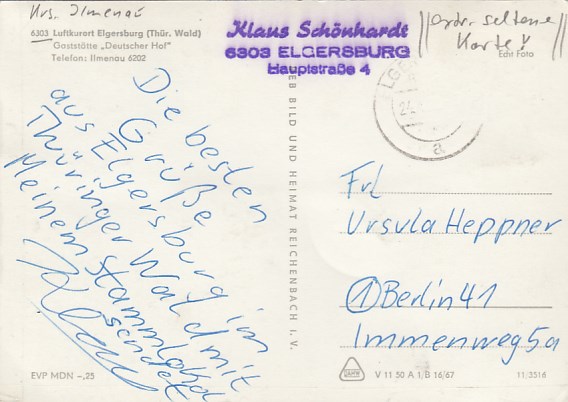 Krs. Ilmenau
6303 Luftkurort Elgersburg (Thür. Wald)
Gaststätte „Deutscher Hof"
Telefon: Ilmenau 6202
Klaus Schönhardt
6303 ELGERSBURG
Hauptstraße 4
seltene
Karte!
Echt Foto
Die besten
Grüße
aus Elgersburg im
Thüringer Wald mit
Meinem Stammlokal
sendet
Klaus
VEB BILD UND HEIMAT REICHENBACH I. V.
a
Frl
Ursula Heppner
1 Berlin 41
Immenweg 5a
EVP MDN –,25
V 11 50 A 1 B 16/67
11/3516